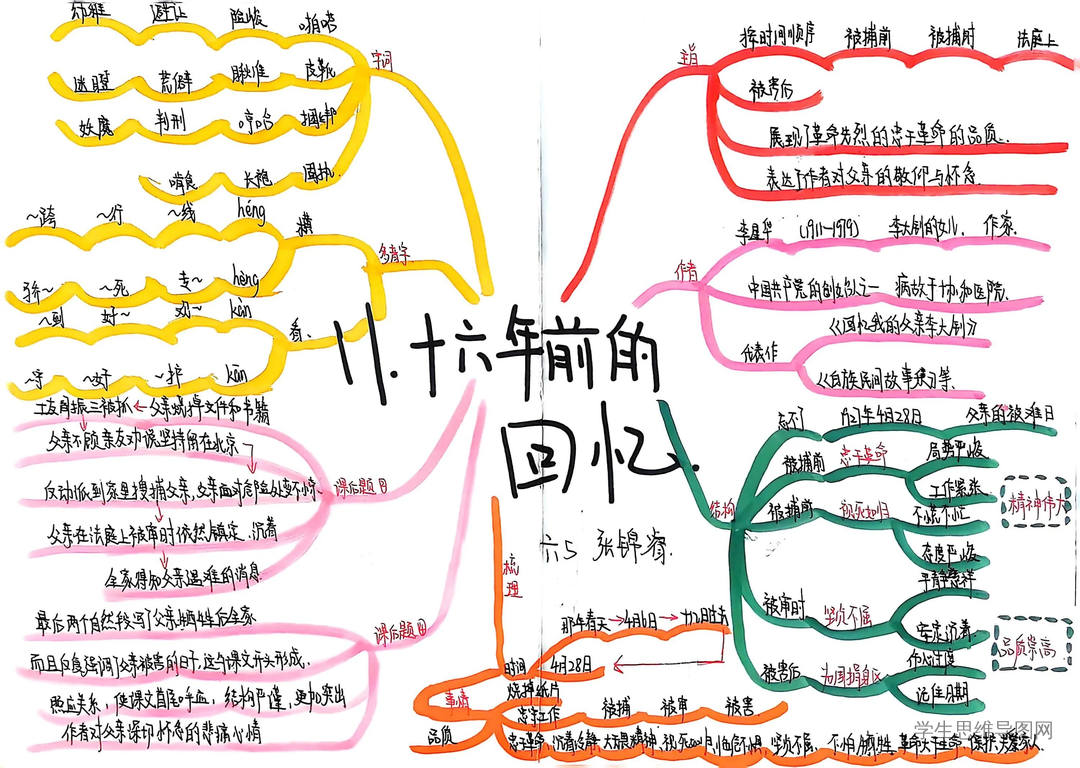 11.十六年前的
回忆
六5 张锦睿
字词
幼稚 避让 险峻 啪嗒
迷瞪 荒僻 瞅准 皮靴
妖魔 判刑 哼哈 捆绑
啃食 长袍 固执
多音字
横
~跨 ~行 ~线 héng
骄~ ~死 专~ hèng
看
~到 好~ 观~ kàn
~守 ~好 ~护 kān
课后题目
工友阎振三被抓←父亲烧掉文件和书籍
父亲不顾亲友劝说坚持留在北京
反动派到家里搜捕父亲,父亲面对危险处变不惊
父亲在法庭上被审时依然镇定、沉着
全家得知父亲遇难的消息
课后题目
最后两个自然段写了父亲牺牲后全家
而且反复强调父亲被害的日子,这与课文开头形成
照应关系,使课文首尾呼应,结构严谨,更加突出
作者对父亲深切怀念的悲痛心情
主旨
按时间顺序 被捕前 被捕时 法庭上
被害后
展现了革命先烈的忠于革命的品质.
表达了作者对父亲的敬仰与怀念
作者
李星华 (1911-1979) 李大钊的女儿. 作家.
中国共产党的创始人之一 病故于协和医院.
代表作
《回忆我的父亲李大钊》
《白族民间故事集》等.
结构
忘不了 1927年4月28日 父亲的被难日
被捕前 忠于革命 局势严峻
工作紧张
被捕前 视死如归 不慌不忙
态度严峻
精神伟大
被审时 坚贞不屈 平静慈祥
安定沉着
被害后 为国捐躯 伤心过度
记住日期
品质崇高
梳理
时间
那年春天→4月6日→十几日过去
4月28日
事情
烧掉纸片
忠于工作 被捕 被审 被害
品质
忠于革命,沉着冷静,大无畏精神、视死如归,临危不惧,坚贞不屈、不怕牺牲,革命大于生命,保护关爱家人
学生思维导图网